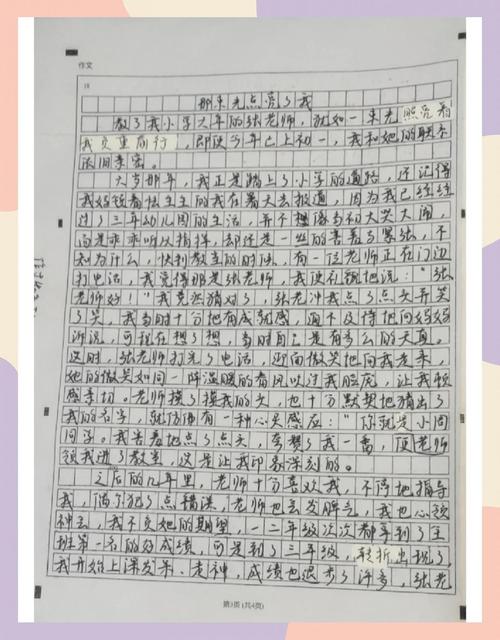 作文
18
那束光点亮了我
教了我小学六年的张老师，就如一束光照亮着
我负重前行，即使今年已上初一，我和她的联系
依旧亲密。
六岁那年，我正是踏上了小学的道路，还记得
我妈领着怯生生的我在着大去报道，因为我已经经
过了三年幼儿园的生活，并不想像当初大哭大闹，
而是乖乖听从指挥，却还是一丝的害羞与紧张，不
知为什么，快到教室的时候，有一位老师正在门边
打电话，我觉得那是张老师，我便礼貌地说：“张
老师好！”我竟然猜对了，张老师冲我点了点头并笑
了笑，我当时十分地有成就感，迫不及待地向妈妈
诉说，可现在想了想，当时自己是有多么的天真。
这时，张老师打完了电话，迎面微笑地向我走来，
她的微笑如同一阵温暖的春风吹过我脸庞，让我顿
感亲切。老师摸了摸我的头，也十分默契地猜出了
我的名字，就仿佛有一种心灵感应：“你就是小周
同学。我害羞地点了点头，夸赞了我一番，便老师
领我进了教室，这是让我印象深刻的。
之后的几年里，老师十分喜欢我，不停地指导
我，偶尔犯了点错误，老师也会发脾气，我也心领
神会，我不负她的期望，一二年级次次都拿到了全
班第一名的好成绩，可是到了三年级，转折出现了，
我开始上课发呆、走神，成绩也退步了许多，张老
第3页 (共4页)